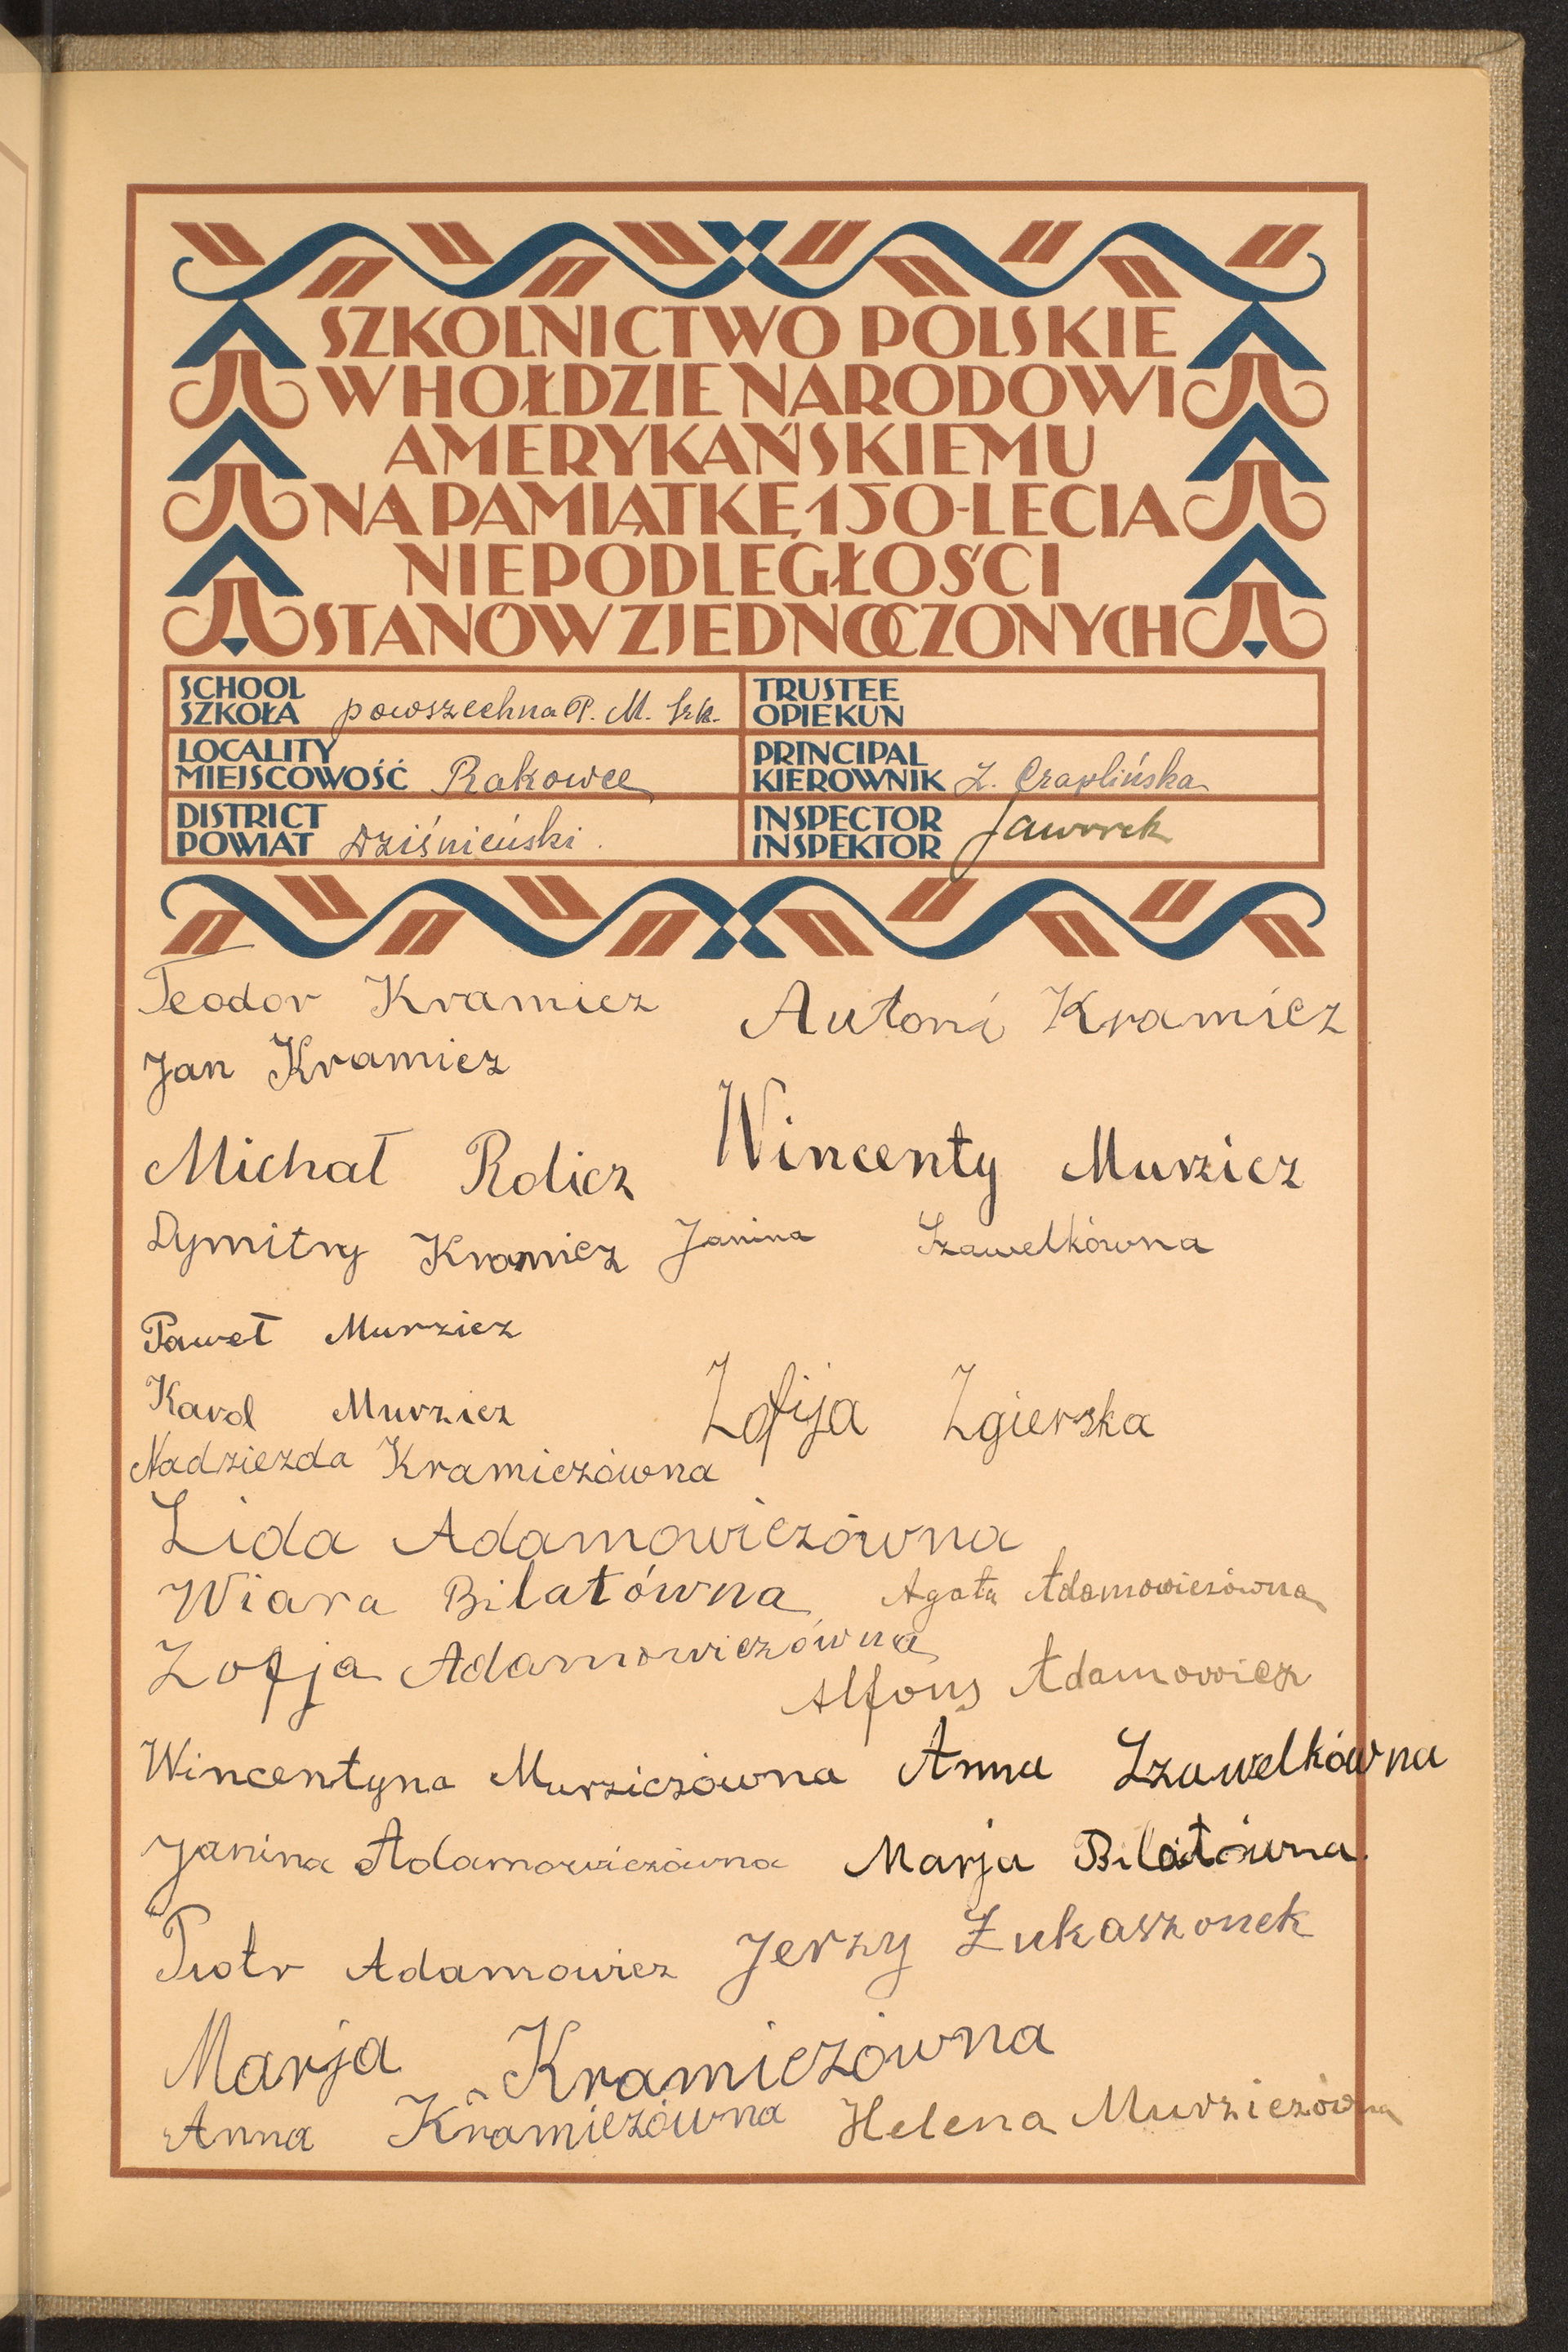 SZKOLNICTWO POLSKIE
W HOŁDZIE NARODOWI
AMERYKAŃSKIEMU
NA PAMIĄTKĘ 150-LECIA
NIEPODLEGŁOŚCI
STANÓW ZJEDNOCZONYCH
SCHOOL
SZKOŁA powszechna P. M. Szk.
TRUSTEE
OPIEKUN
LOCALITY
MIEJSCOWOŚĆ Rakowce
PRINCIPAL
KIEROWNIK Z. Czaplińska
DISTRICT
POWIAT Dziśnieński.
INSPECTOR
INSPEKTOR Jaworek
Teodor Kramicz Antoni Kramicz
Jan Kramicz
Michał Rolicz Wincenty Murzicz
Dymitry Kramicz Janina Szawelkówna
Paweł Murzicz
Karol Murzicz Zofija Zgierska
Nadziezda Kramiczówna
Lida Adamowiczówna
Wiara Bilatówna Agata Adamowiczówna
Zofja Adamowiczówna
Alfons Adamowicz
Wincentyna Murziczówna Anna Szawelkówna
Janina Adamowiczówna Marja Bilatówna
Piotr Adamowicz Jerzy Łukaszonek
Marja Kramiczówna
Anna Kramiczówna Helena Murziczówna